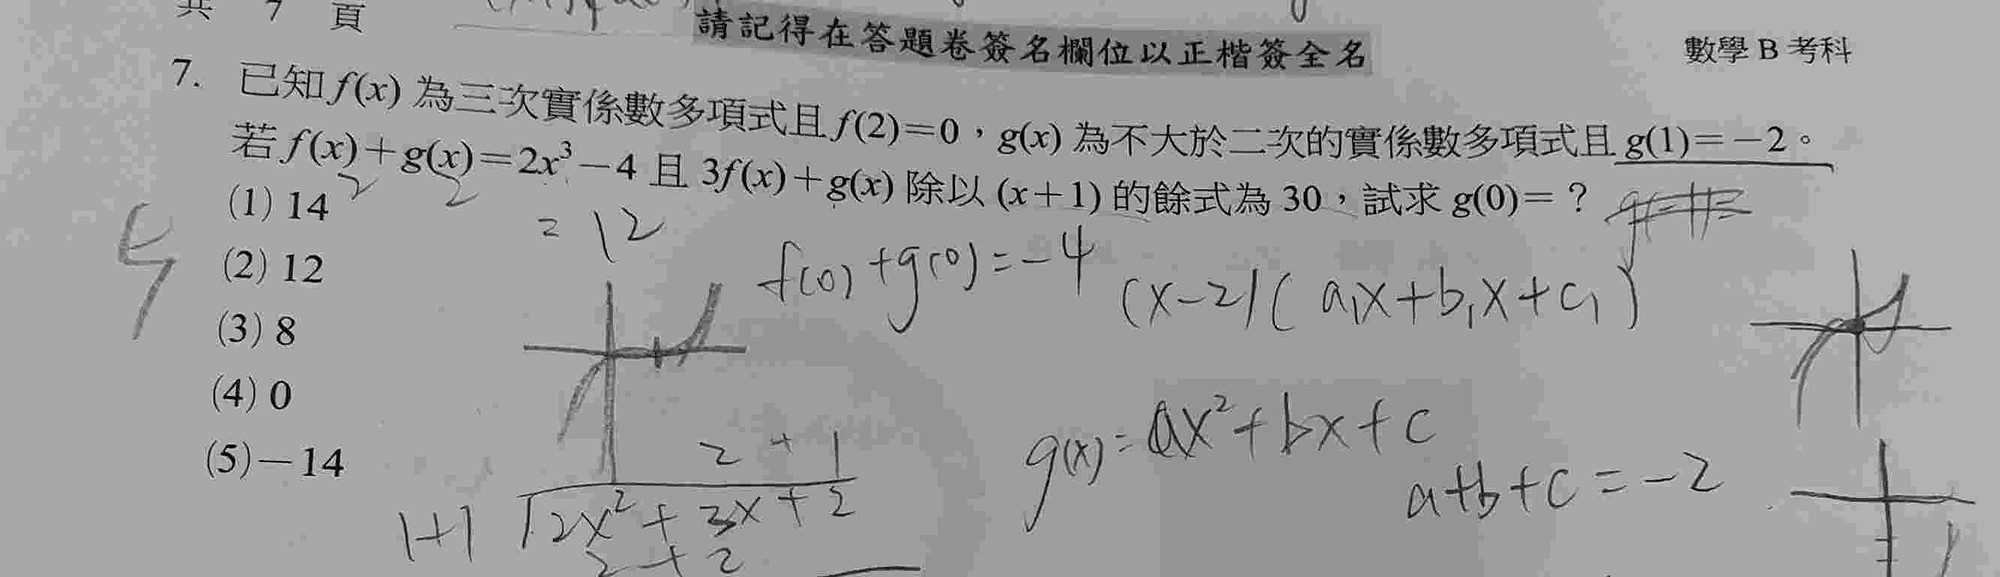 共 7 頁
請記得在答題卷簽名欄位以正楷簽全名
數學 B 考科
7. 已知 f(x) 為三次實係數多項式且 f(2)=0，g(x) 為不大於二次的實係數多項式且 g(1)=－2。
若 f(x)+g(x)=2x³－4 且 3f(x)+g(x) 除以 (x+1) 的餘式為 30，試求 g(0)=？
2 2 = 12
(1) 14
(2) 12
(3) 8
(4) 0
(5)－14
f(0)+g(0)=-4
(x-2)(a₁x+b₁x+c₁)
g(x)=ax²+bx+c
a+b+c=-2
2 + 1
1+1 2x²+3x+2
2+2